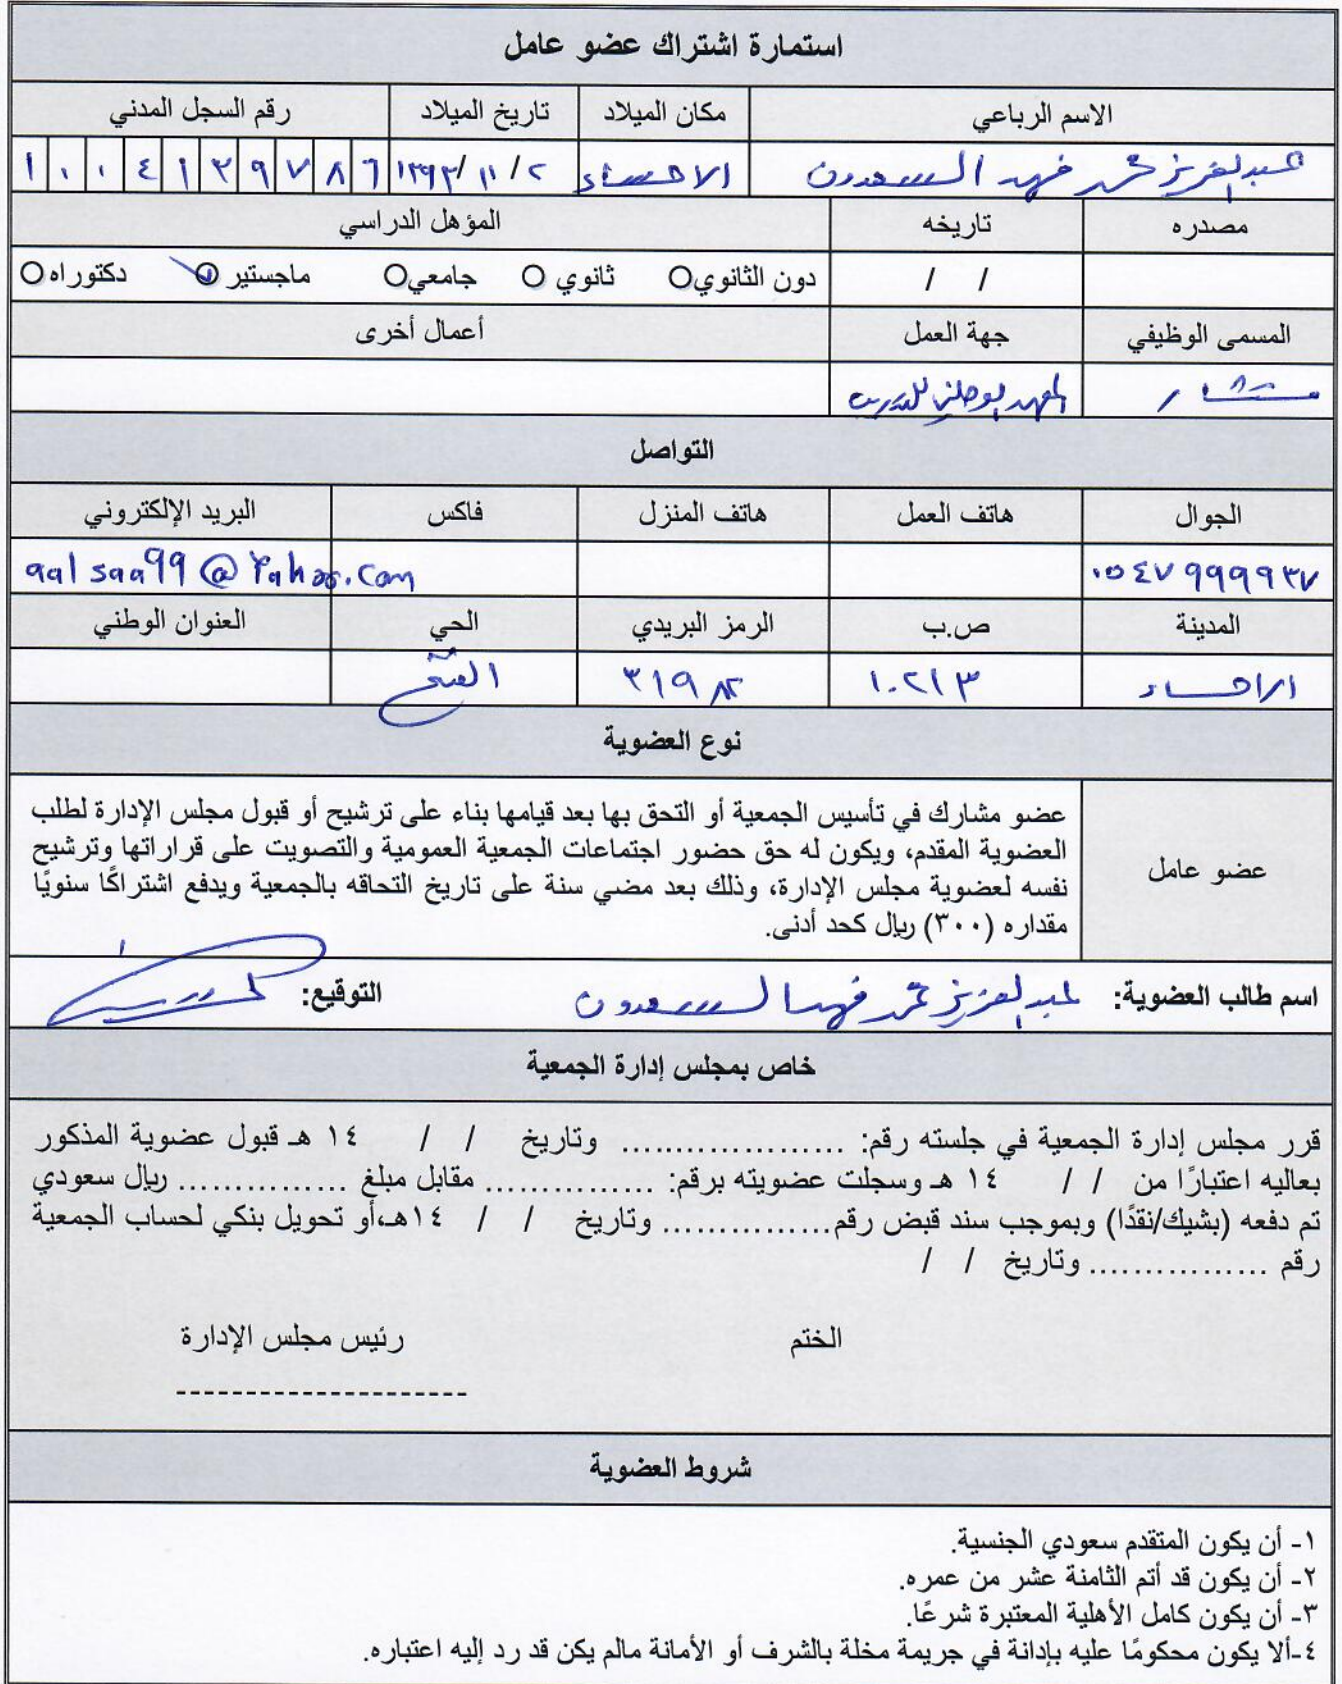 استمارة اشتراك عضو عامل
الاسم الرباعي مكان الميلاد تاريخ الميلاد رقم السجل المدني
عبدالعزيز محمد فهد السعدون الاحساء ١٣٩٣/١١/٢ ١٠٠٤١٢٩٧٨٦
مصدره تاريخه المؤهل الدراسي
/ / دون الثانوي ثانوي جامعي ماجستير دكتوراه
المسمى الوظيفي جهة العمل أعمال أخرى
مستشار المعهد الوطني للتدريب
التواصل
الجوال هاتف العمل هاتف المنزل فاكس البريد الإلكتروني
٠٥٤٧٩٩٩٩٣٧ aalsaa99@Yahoo.com
المدينة ص.ب الرمز البريدي الحي العنوان الوطني
الاحساء ١٠٢١٣ ٣١٩٨٢ الفتح
نوع العضوية
عضو عامل
عضو مشارك في تأسيس الجمعية أو التحق بها بعد قيامها بناء على ترشيح أو قبول مجلس الإدارة لطلب
العضوية المقدم، ويكون له حق حضور اجتماعات الجمعية العمومية والتصويت على قراراتها وترشيح
نفسه لعضوية مجلس الإدارة، وذلك بعد مضي سنة على تاريخ التحاقه بالجمعية ويدفع اشتراكًا سنويًا
مقداره (٣٠٠) ريال كحد أدنى.
اسم طالب العضوية: عبدالعزيز محمد فهد السعدون التوقيع:
خاص بمجلس إدارة الجمعية
قرر مجلس إدارة الجمعية في جلسته رقم: .................... وتاريخ / / ١٤ هـ قبول عضوية المذكور
بعاليه اعتبارًا من / / ١٤ هـ وسجلت عضويته برقم: ............... مقابل مبلغ ............... ريال سعودي
تم دفعه (بشيك/نقدًا) وبموجب سند قبض رقم............... وتاريخ / / ١٤هـ،أو تحويل بنكي لحساب الجمعية
رقم ................ وتاريخ / /
الختم رئيس مجلس الإدارة
---------------------
شروط العضوية
١- أن يكون المتقدم سعودي الجنسية.
٢- أن يكون قد أتم الثامنة عشر من عمره.
٣- أن يكون كامل الأهلية المعتبرة شرعًا.
٤-ألا يكون محكومًا عليه بإدانة في جريمة مخلة بالشرف أو الأمانة مالم يكن قد رد إليه اعتباره.